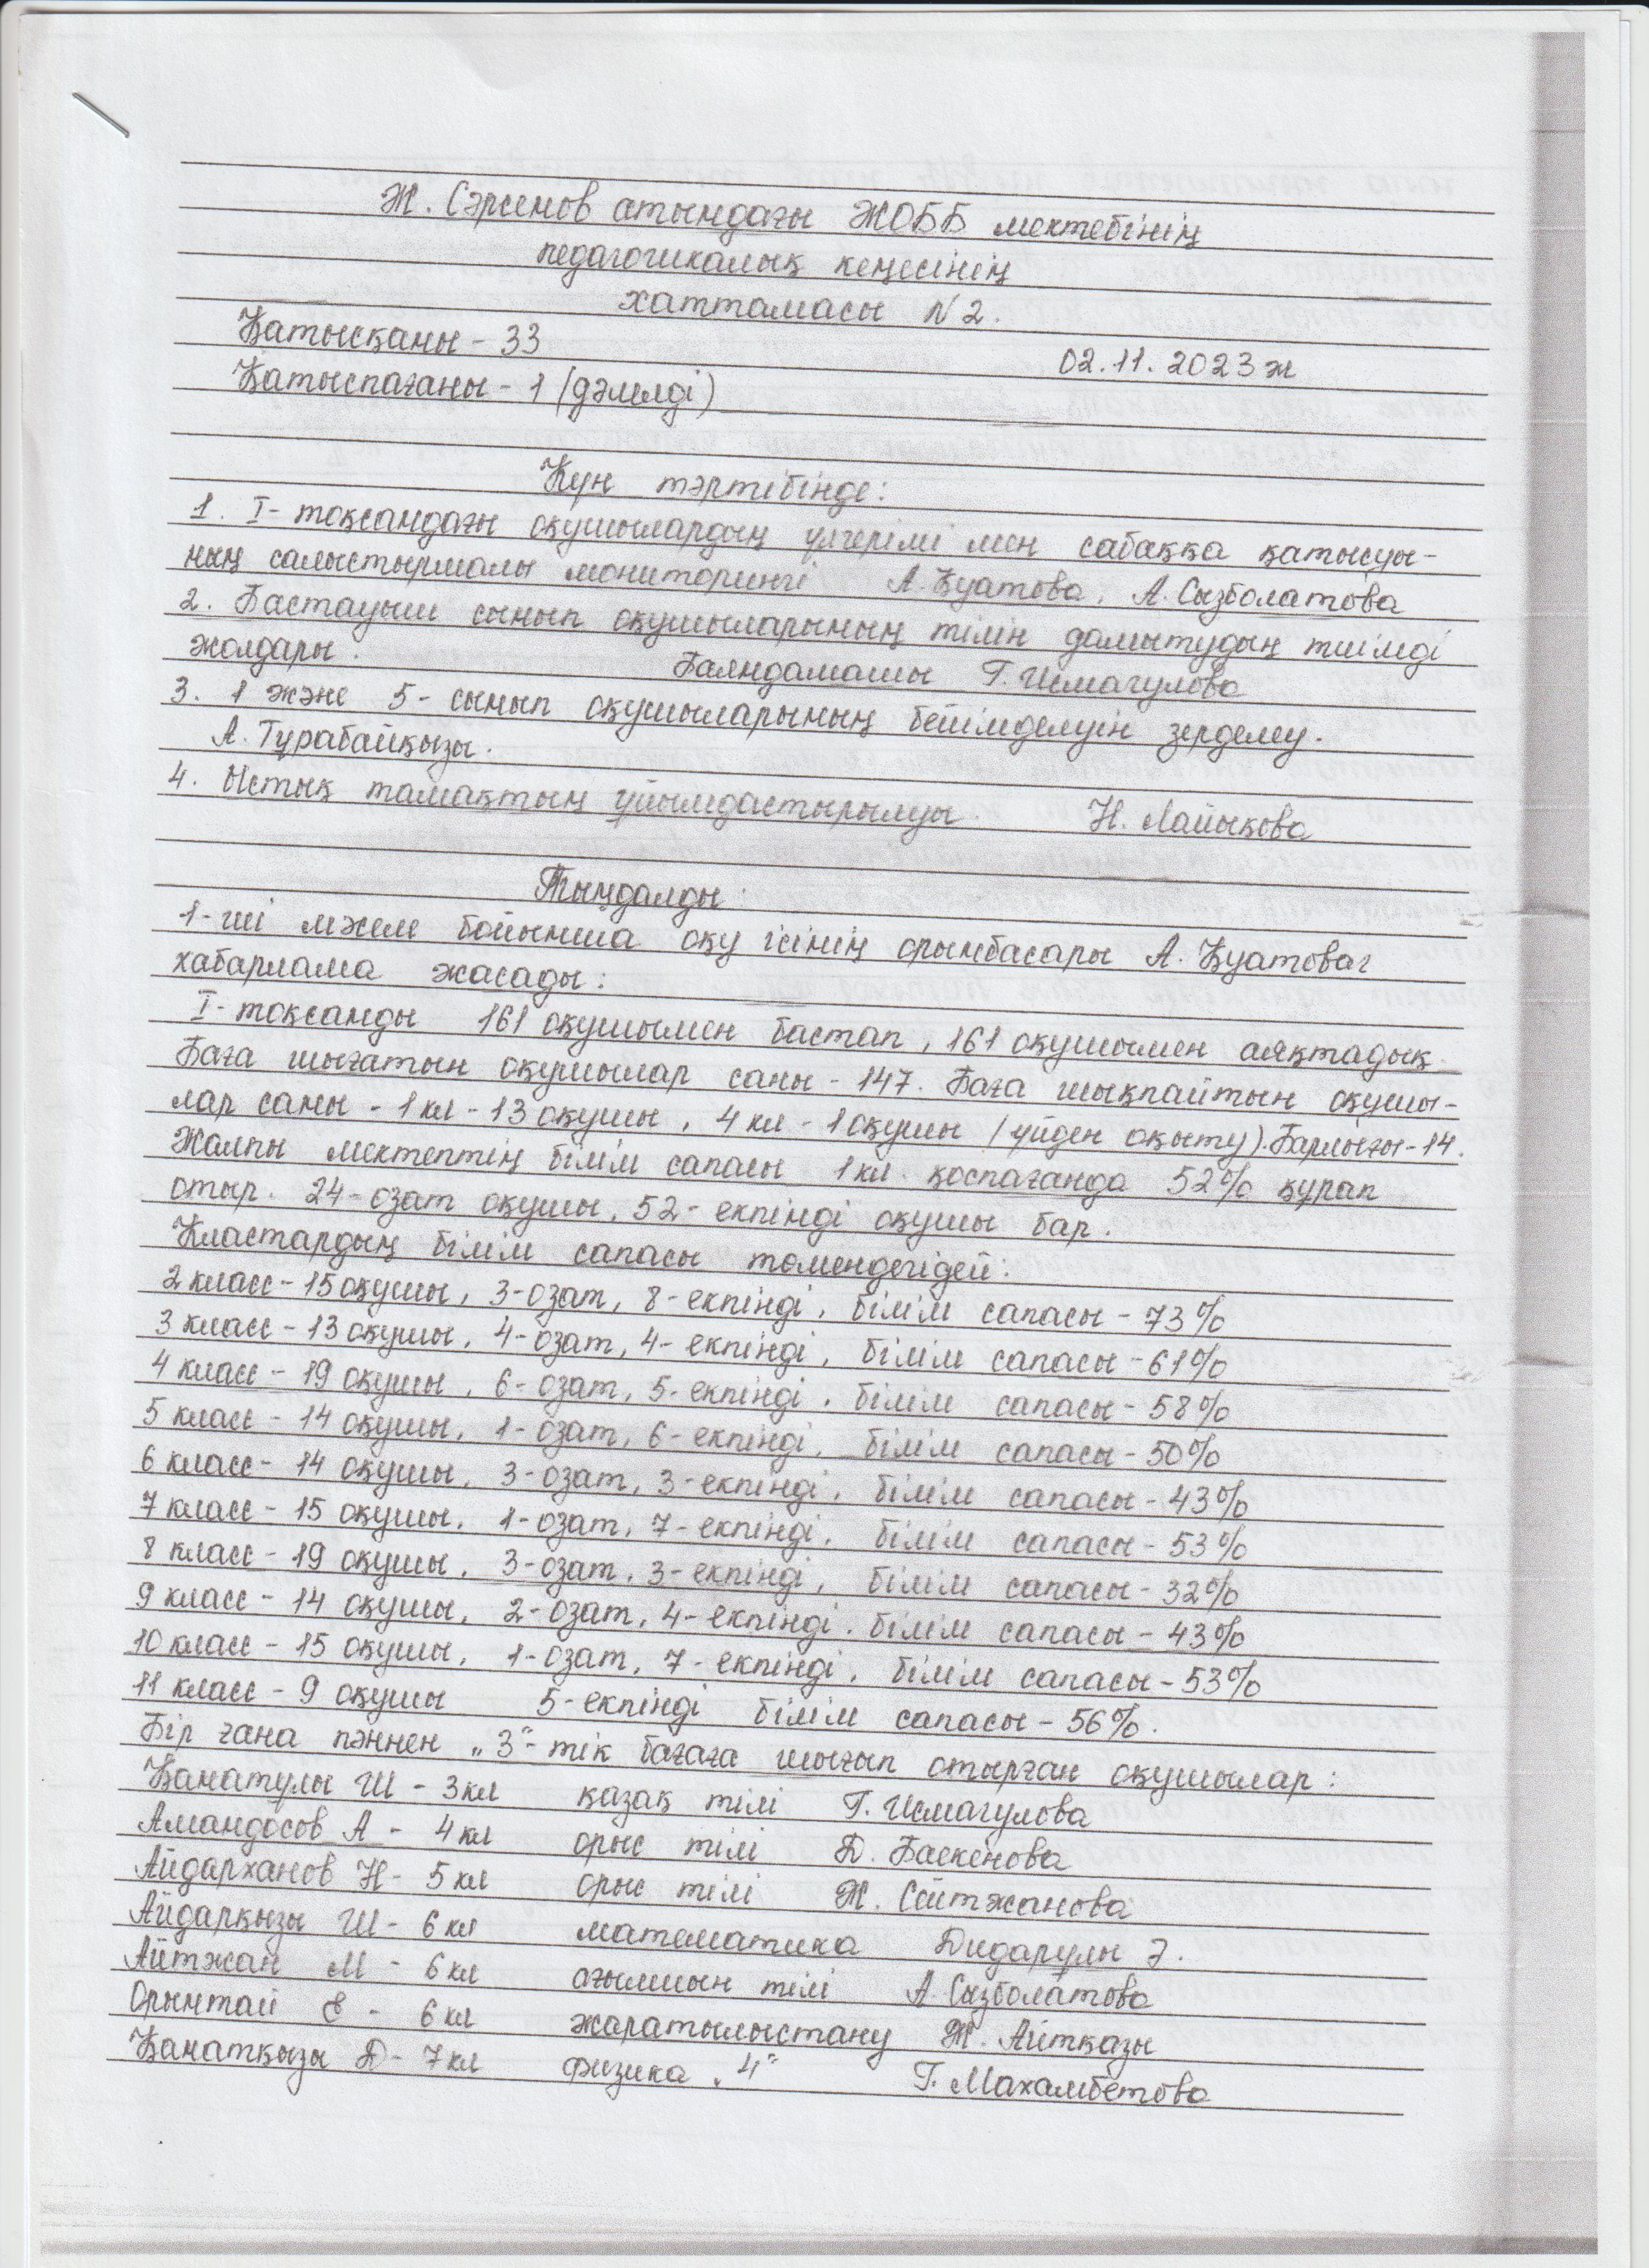 Ж. Сәрсенов атындағы ЖОББ мектебінің
педагогикалық кеңесінің
хаттамасы №2.
Қатысқаны - 33
02.11.2023 ж
Қатыспағаны - 1 (дәлелді)
Күн тәртібінде:
1. I - тоқсандағы оқушылардың үлгерімі мен сабаққа қатысуы-
ның салыстырмалы мониторингі А. Қуатова, А. Сызболатова
2. Бастауыш сынып оқушыларының тілін дамытудың тиімді
жолдары. Баяндамашы Г. Исмагулова
3. 1 және 5 - сынып оқушыларының бейімделуін зерделеу.
А. Тұрабайқызы.
4. Ыстық тамақтың ұйымдастырылуы. Н. Лайықова
Тыңдалды:
1 - ші мәселе бойынша оқу ісінің орынбасары А. Қуатова
хабарлама жасады:
I - тоқсанды 161 оқушымен бастап, 161 оқушымен аяқтадық.
Баға шығатын оқушылар саны - 147. Баға шықпайтын оқушы-
лар саны - 1 кл - 13 оқушы, 4 кл - 1 оқушы (үйден оқыту). Барлығы - 14.
Жалпы мектептің білім сапасы 1 кл. қоспағанда 52% құрап
отыр. 24 - озат оқушы, 52 - екпінді оқушы бар.
Кластардың білім сапасы төмендегідей:
2 класс - 15 оқушы, 3 - озат, 8 - екпінді, білім сапасы - 73%
3 класс - 13 оқушы, 4 - озат, 4 - екпінді, білім сапасы - 61%
4 класс - 19 оқушы, 6 - озат, 5 - екпінді, білім сапасы - 58%
5 класс - 14 оқушы, 1 - озат, 6 - екпінді, білім сапасы - 50%
6 класс - 14 оқушы, 3 - озат, 3 - екпінді, білім сапасы - 43%
7 класс - 15 оқушы, 1 - озат, 7 - екпінді, білім сапасы - 53%
8 класс - 19 оқушы, 3 - озат, 3 - екпінді, білім сапасы - 32%
9 класс - 14 оқушы, 2 - озат, 4 - екпінді, білім сапасы - 43%
10 класс - 15 оқушы, 1 - озат, 7 - екпінді, білім сапасы - 53%
11 класс - 9 оқушы 5 - екпінді білім сапасы - 56%.
Бір ғана пәннен „3" - тік бағаға шығып отырған оқушылар:
Қанатұлы Ш - 3 кл қазақ тілі Г. Исмагулова
Амандосов А - 4 кл орыс тілі Д. Баекенова
Айдарханов Н - 5 кл орыс тілі Ж. Сейтжанова
Айдарқызы Ш - 6 кл математика Дидарұлы Ә.
Айтжан М - 6 кл ағылшын тілі А. Сызболатова
Орынтай Е - 6 кл жаратылыстану Ж. Айтқазы
Қанатқызы Д - 7 кл физика „4" Г. Махамбетова